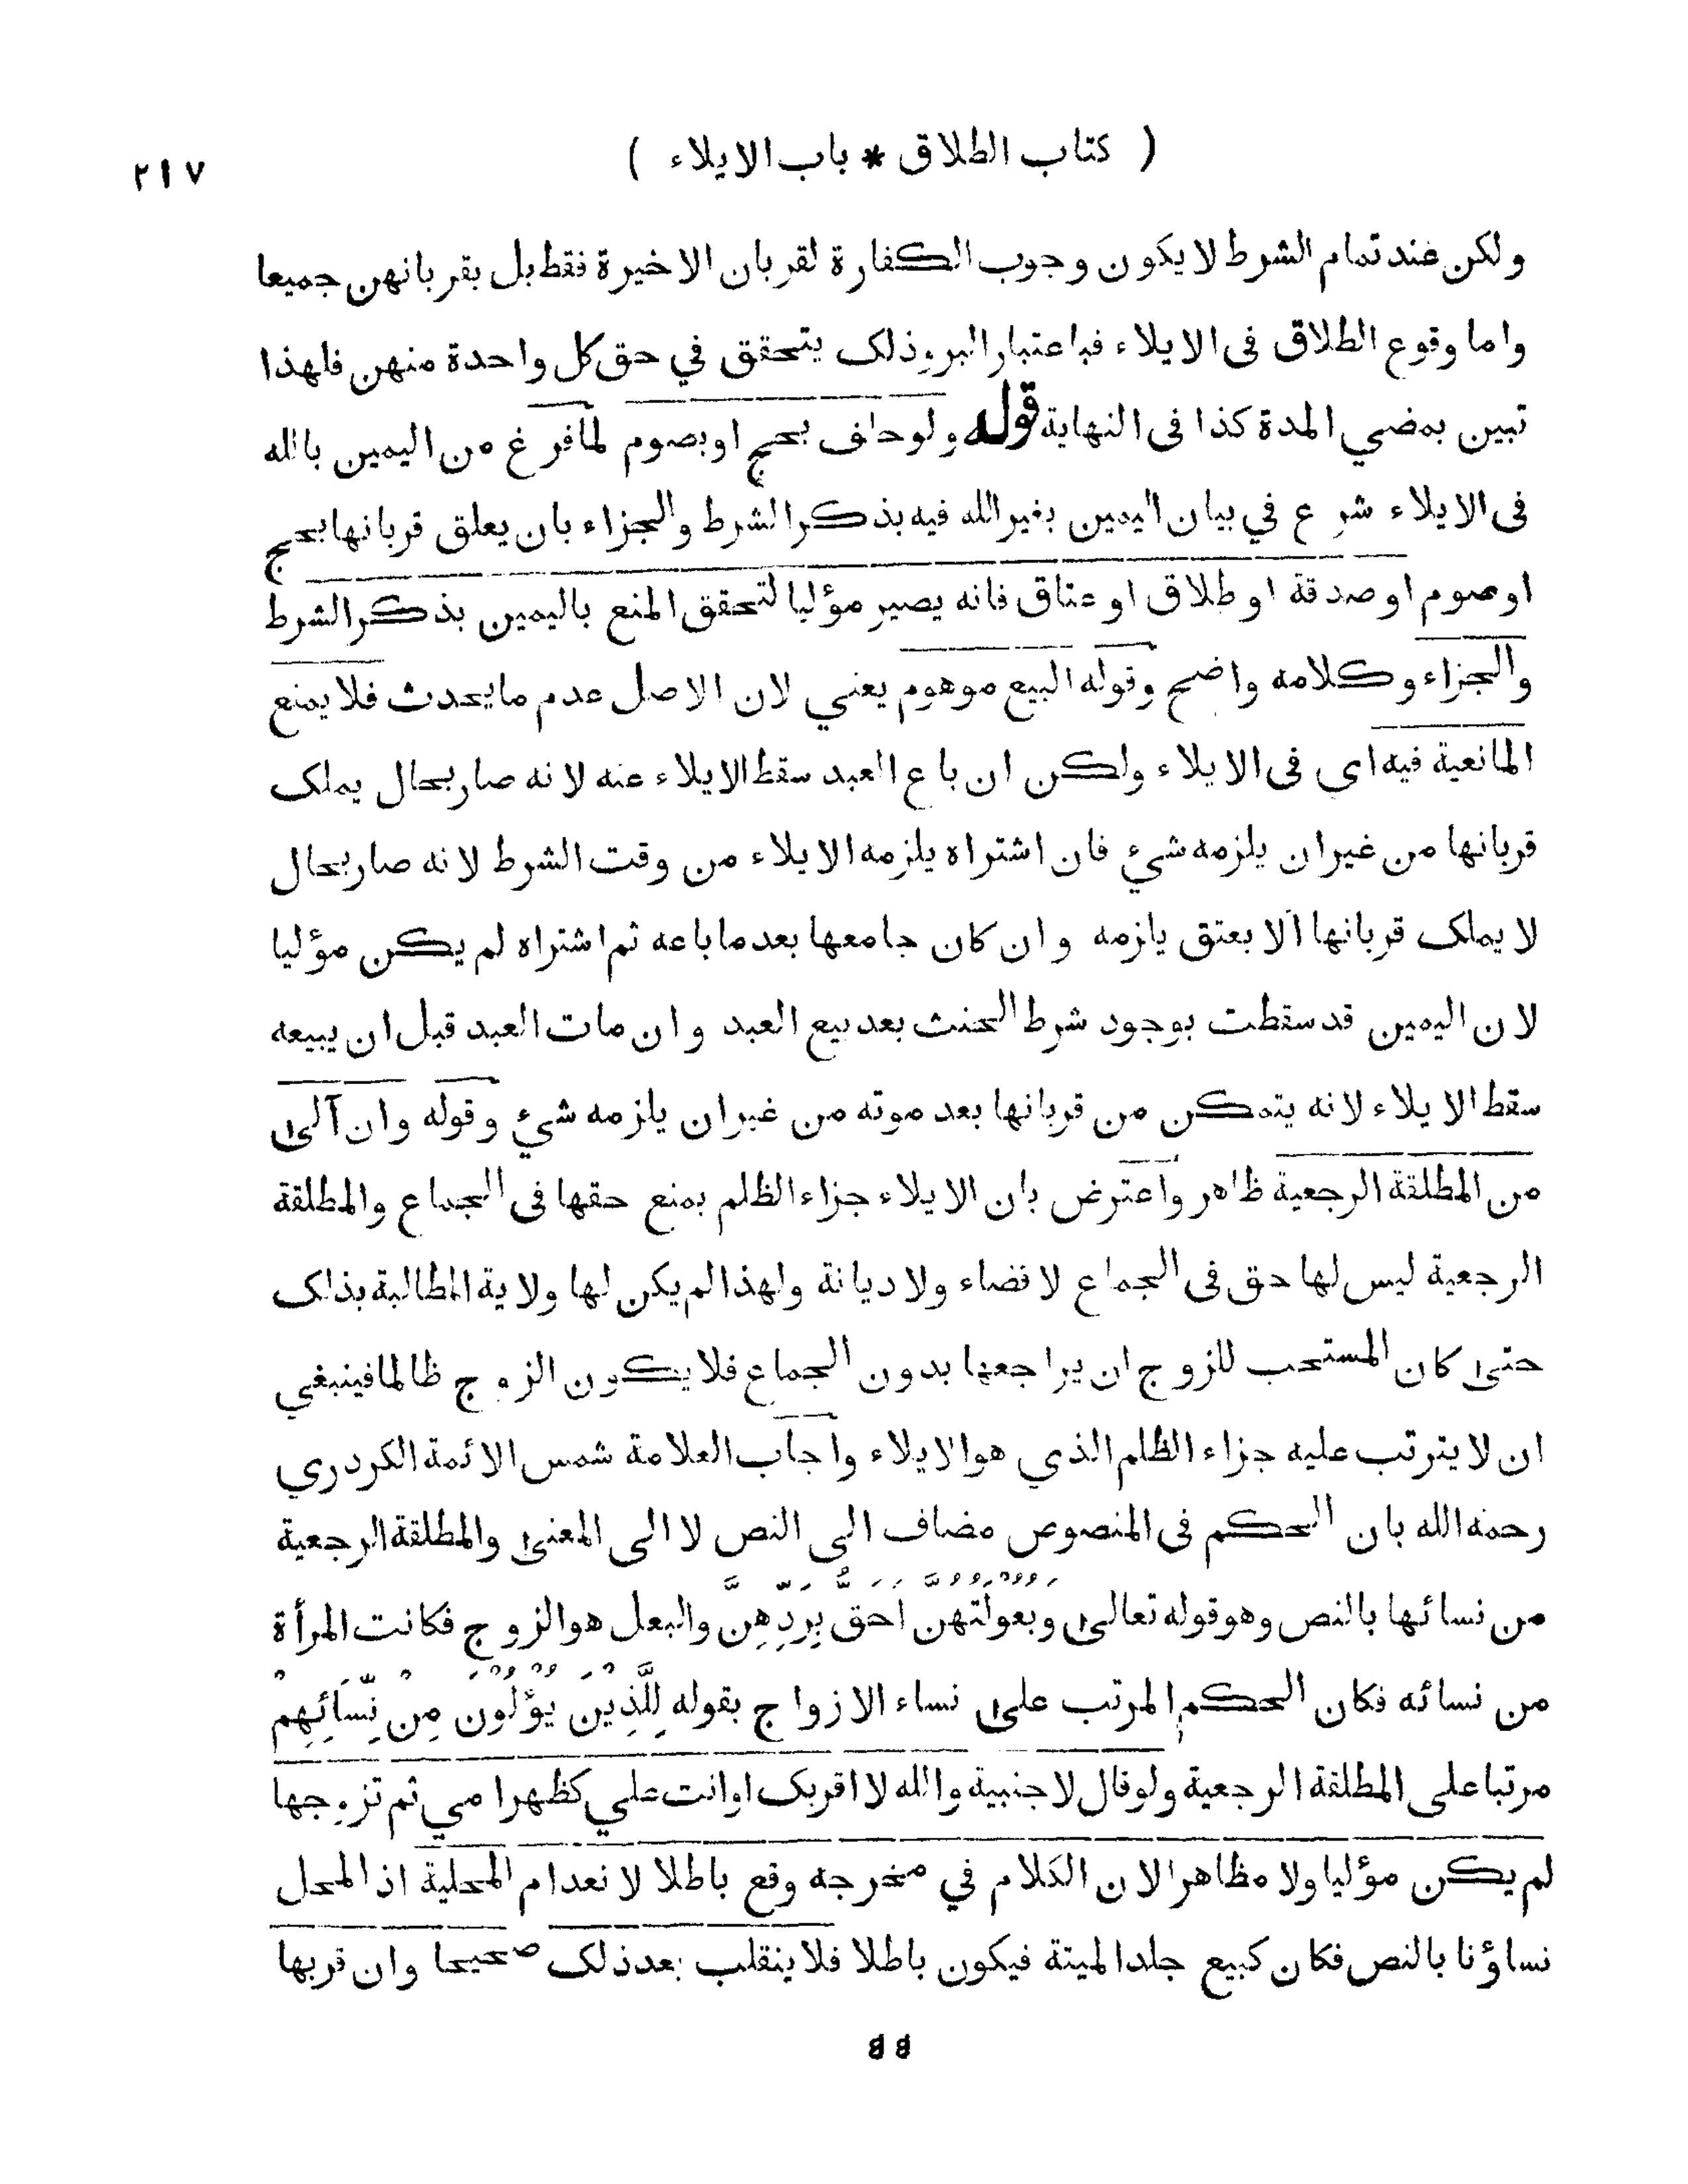 ( كتاب الطلاق * باب الايلاء ) ٢١٧
ولكن عند تمام الشرط لا يكون وجوب الكفارة لقربان الاخيرة فقط بل بقربانهن جميعا
واما وقوع الطلاق فى الايلاء فباعتبار البر وذلك يتحقق في حق كل واحدة منهن فلهذا
تبين بمضي المدة كذا فى النهاية قوله ولو حلف بحج او بصوم لما فرغ من اليمين بالله
فى الايلاء شرع في بيان اليمين بغير الله فيه بذكر الشرط والجزاء بان يعلق قربانها بحج
او صوم او صدقة او طلاق او عتاق فانه يصير مؤليا لتحقق المنع باليمين بذكر الشرط
والجزاء وكلامه واضح وقوله البيع موهوم يعني لان الاصل عدم ما يحدث فلا يمنع
المانعية فيه اى فى الايلاء ولكن ان باع العبد سقط الايلاء عنه لانه صار بحال يملك
قربانها من غير ان يلزمه شيء فان اشتراه يلزمه الايلاء من وقت الشرط لانه صار بحال
لا يملك قربانها الا بعتق يلزمه وان كان جامعها بعد ما باعه ثم اشتراه لم يكن مؤليا
لان اليمين قد سقطت بوجود شرط الحنث بعد بيع العبد وان مات العبد قبل ان يبيعه
سقط الايلاء لانه يتمكن من قربانها بعد موته من غير ان يلزمه شيء وقوله وان آلى
من المطلقة الرجعية ظاهر واعترض بان الايلاء جزاء الظلم بمنع حقها فى الجماع والمطلقة
الرجعية ليس لها حق فى الجماع لا قضاء ولا ديانة ولهذا لم يكن لها ولاية المطالبة بذلك
حتى كان المستحب للزوج ان يراجعها بدون الجماع فلا يكون الزوج ظالما فينبغي
ان لا يترتب عليه جزاء الظلم الذي هو الايلاء واجاب العلامة شمس الائمة الكردري
رحمه الله بان الحكم فى المنصوص مضاف الى النص لا الى المعنى والمطلقة الرجعية
من نسائها بالنص وهو قوله تعالى وَبُعُوْلَتُهُنَّ اَحَقُّ بِرَدِّهِنَّ والبعل هو الزوج فكانت المرأة
من نسائه فكان الحكم المرتب على نساء الازواج بقوله لِلَّذِيْنَ يُؤْلُوْنَ مِنْ نِّسَائِهِمْ
مرتبا على المطلقة الرجعية ولو قال لاجنبية والله لا اقربك او انت علي كظهر امي ثم تزوجها
لم يكن مؤليا ولا مظاهرا لان الكلام في مخرجه وقع باطلا لانعدام المحلية اذ المحل
نساؤنا بالنص فكان كبيع جلد الميتة فيكون باطلا فلا ينقلب بعد ذلك صحيحا وان قربها